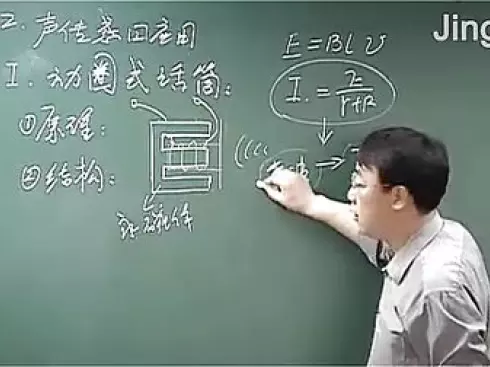 2. 声传感器应用
I. 动圈式话筒:
①原理:
②结构:
永磁体
E = BLv
I. = E/(r+R)
声波 →
Jing